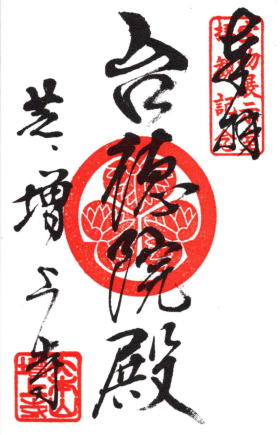 奉拝
台徳院殿
芝 増上寺